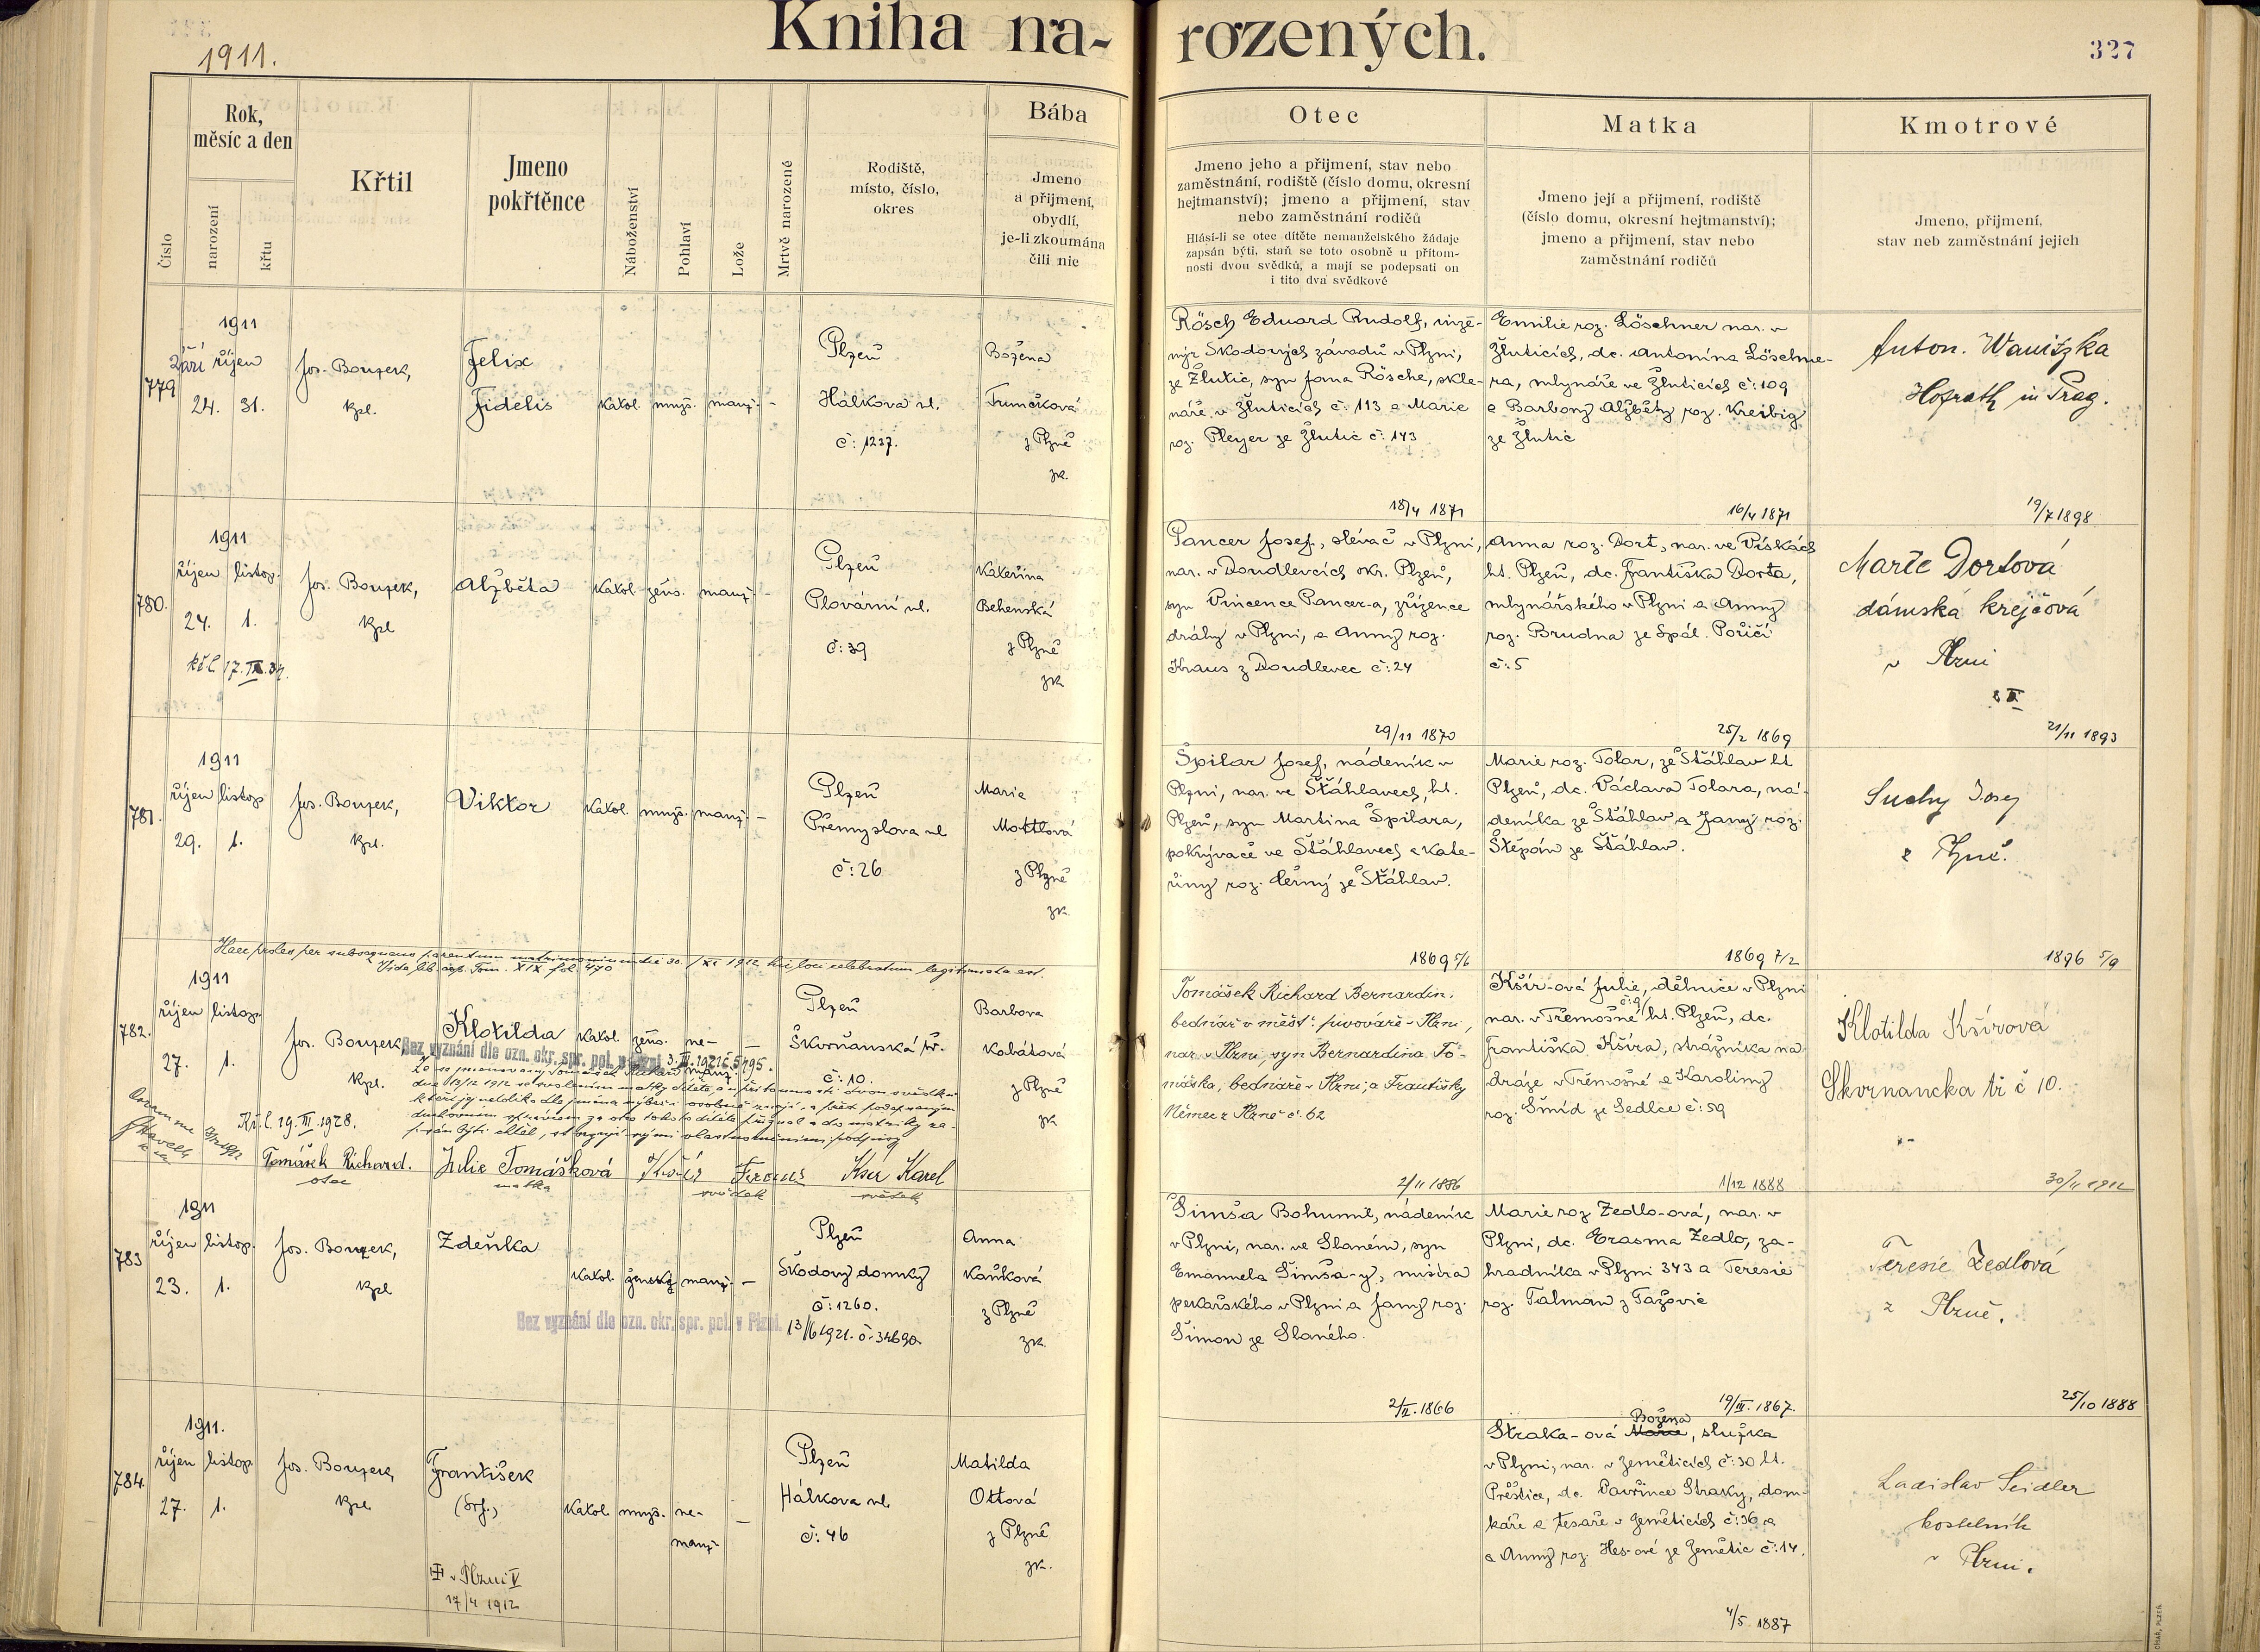 1911.
Kniha na-
rozených.
327
Číslo
Rok,
měsíc a den
narození
křtu
Křtil
Jmeno
pokřtěnce
Náboženství
Pohlaví
Lože
Mrtvě narozené
Rodiště,
místo, číslo,
okres
Bába
Jmeno
a přijmení,
obydlí,
je-li zkoumána
čili nic
Otec
Jmeno jeho a přijmení, stav nebo
zaměstnání, rodiště (číslo domu, okresní
hejtmanství); jmeno a přijmení, stav
nebo zaměstnání rodičů
Hlásí-li se otec dítěte nemanželského žádaje
zapsán býti, staň se toto osobně u přítom-
nosti dvou svědků, a mají se podepsati on
i tito dva svědkové
Matka
Jmeno její a přijmení, rodiště
(číslo domu, okresní hejtmanství);
jmeno a přijmení, stav nebo
zaměstnání rodičů
Kmotrové
Jmeno, přijmení,
stav neb zaměstnání jejich
779
1911
Září říjen
24. 31.
Jos. Bouzek,
kpl.
Felix
Fidelis
katol. mužs. manž. -
Plzeň
Hálkova ul.
č: 1237.
Božena
Tumčková
z Plzně
zk.
Rösch Eduard Rudolf, inže-
nýr Škodových závodů v Plzni,
ze Žlutic, syn Jana Rösche, skle-
náře v Žluticích č: 113 a Marie
roz. Pleyer ze Žlutic č: 143
18/4 1871
Emilie roz. Löschner nar. v
Žluticích, dc. Antonína Löschne-
ra, mlynáře ve Žluticích č: 109
a Barbory Alžběty roz. Kreibig
ze Žlutic
16/4 1871
Anton. Wanitzka
Hofrath in Prag.
19/7 1898
780.
1911
říjen listop.
24. 1.
kř.l. 17. IX. 34.
Jos. Bouzek,
kpl
Alžběta
katol. žens. manž. -
Plzeň
Plovární ul.
č: 39
Kateřina
Behenská
z Plzně
zk
Pancer Josef, slévač v Plzni,
nar. v Doudlevcích okr. Plzeň,
syn Vincence Pancer-a, zřízence
dráhy v Plzni, a Anny roz.
Kraus z Doudlevec č: 24
29/11 1870
Anna roz. Dort, nar. ve Vískách
ht. Plzeň, dc. Františka Dorta,
mlynářského v Plzni a Anny
roz. Brudna ze Spál. Poříčí
č: 5
25/2 1869
Marie Dortová
dámská krejčová
v Plzni
21/11 1893
781.
1911
říjen listop
29. 1.
Jos. Bouzek,
kpl.
Viktor
katol. mužs. manž. -
Plzeň
Přemyslova ul
č: 26
Marie
Mottlová
z Plzně
zk.
Špilar Josef, nádeník v
Plzni, nar. ve Štáhlavech, ht.
Plzeň, syn Martina Špilara,
pokrývače ve Štáhlavech a Kate-
řiny roz. Černý ze Štáhlav.
1869 5/6
Marie roz. Tolar, ze Štáhlav ht
Plzeň, dc. Václava Tolara, ná-
deníka ze Štáhlav a Jany roz.
Štěpán ze Štáhlav.
1869 7/2
Suchy Josef
z Plzně.
1896 5/9
Haec proles per subsequens parentum matrimonium die 30. / XI 1912 hic loci celebratum legitimata est.
Vide lib. cop. Tom. XIX fol. 470
782.
1911
říjen listop.
27. 1.
Jos. Bouzek,
kpl.
Klotilda
katol. žens. ne-
manž. -
Bez vyznání dle ozn. okr. spr. pol. v Plzni 3. III. 1921 č. 5795.
Plzeň
Škvrňanská tř.
č: 10.
Barbora
Kobátová
z Plzně
zk
Kř. l. 19. III. 1928.
Tomášek Richard.
otec
Julie Tomášková
matka
svědek
Ksir Karel
svědek
Tomášek Richard Bernardin,
bednář v měšť. pivováře v Plzni,
nar. v Plzni, syn Bernardina To-
máška, bednáře v Plzni, a Františky
Němec z Plzně č. 62
2/11 1886
Kšír-ová Julie, dělnice v Plzni
nar. v Třemošné č: 9/ ht. Plzeň, dc.
Františka Kšíra, strážníka na
dráze v Třemošné a Karoliny
roz. Šmíd ze Sedlce č: 59
1/12 1888
Klotilda Kšírova
Skvrnancka tř č 10.
30/11 1912
783
1911
říjen listop.
23. 1.
Jos. Bouzek,
kpl
Zdeňka
katol. ženské manž. -
Bez vyznání dle ozn. okr. spr. pol. v Plzni.
13/6 1921. č. 34690.
Plzeň
Škodovy domky
č: 1260.
Anna
Kaňková
z Plzně
zk.
Šimša Bohumil, nádeník
v Plzni, nar. ve Slaném, syn
Emanuela Šimša-y, mistra
pekařského v Plzni a Jany roz.
Šimon ze Slaného.
2/II. 1866
Marie roz Zedlo-ová, nar. v
Plzni, dc. Erasma Zedlo, za-
hradníka v Plzni 343 a Teresie
roz. Talman z Tažovic
19/III. 1867.
Teresie Zedlová
z Plzně.
25/10 1888
784.
1911.
říjen listop
27. 1.
Jos. Bouzek,
kpl.
František
(Srf.)
katol. mužs. ne-
manž. -
v Plzni V
17/4 1912
Plzeň
Hálkova ul.
č: 46
Matilda
Ottová
z Plzně
zk.
Božena
Straka-ová Marie, služka
v Plzni, nar. v Zeměticích č: 30 ht.
Přeštice, dc. Vavřince Straky, dom-
káře a tesaře v Zeměticích č: 36 a
a Anny roz. Hes-ové ze Zemětic č: 14.
4/5. 1887
Ladislav Seidler
kostelník
v Plzni.